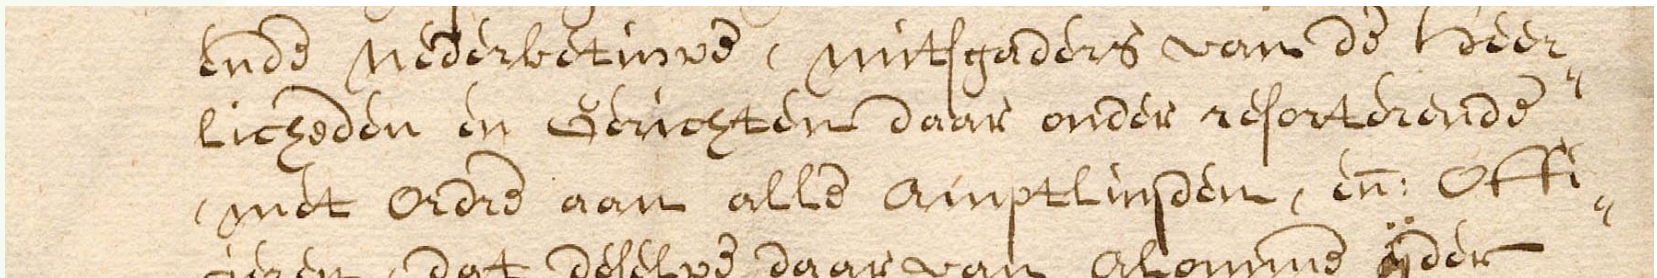 ende Nederbetuwe, mitsgaders van de Heer„
licheden en Gerichten daar onder resorterende
, met ordre aan alle Amptluijden, en̄: Offi„
cieren, dat deselve daar van alomme ÿder